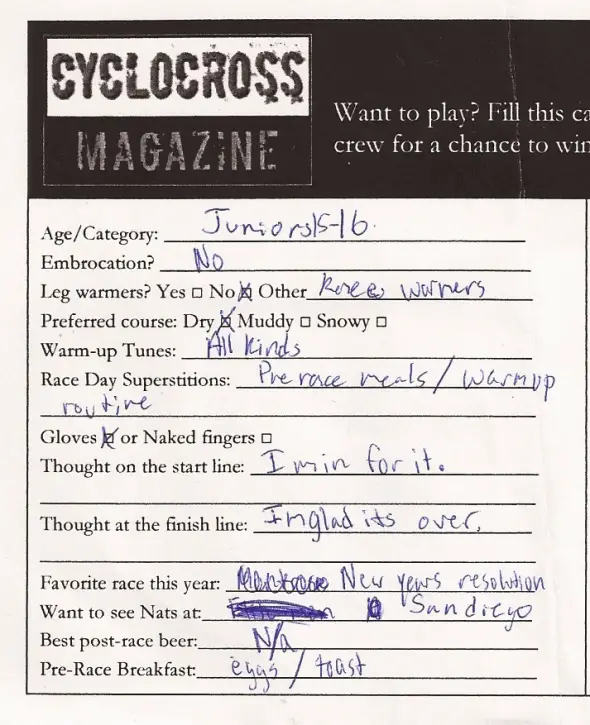 CYCLOCROSS
MAGAZINE
Want to play? Fill this ca
crew for a chance to win
Age/Category: Juniors 15-16
Embrocation? No
Leg warmers? Yes □ No ☒ Other Knee warmers
Preferred course: Dry ☒ Muddy □ Snowy □
Warm-up Tunes: All Kinds
Race Day Superstitions: Pre race meals / warmup
routine
Gloves ☒ or Naked fingers □
Thought on the start line: I min for it.
Thought at the finish line: Im glad its over.
Favorite race this year: New years resolution
Want to see Nats at: San diego
Best post-race beer: N/a
Pre-Race Breakfast: eggs / toast